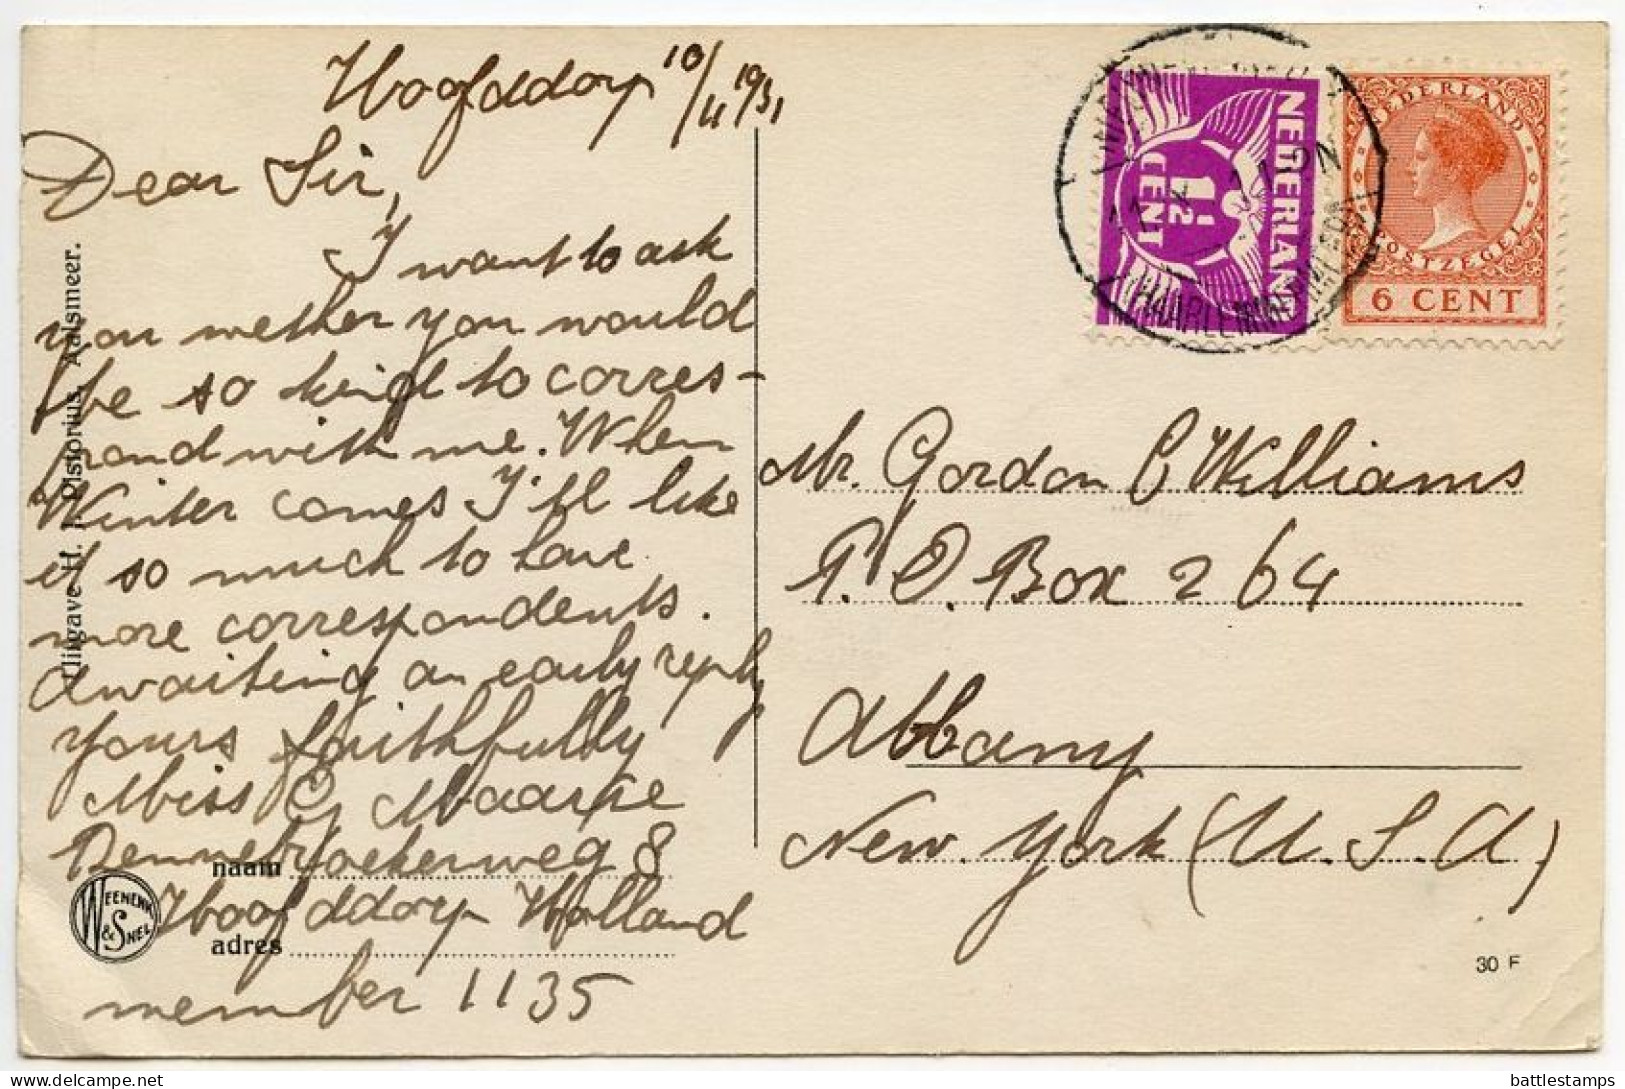 Hoofddorp 10/11 1931
Dear Sir,
I want to ask
you wether you would
be so kind to corres-
pond with me. When
Winter comes I'll like
it so much to have
more correspondents.
Awaiting an early reply
yours faithfully
Miss G Maarse
Bennebroekerweg 8
Hoofddorp Holland
member 1135
naam
adres
Uitgave H. J. Pistorius, Aalsmeer.
WEENENK & SNEL
NEDERLAND
1½ CENT
NEDERLAND
POSTZEGEL
6 CENT
HAARLEMMERMEER
Mr. Gordon C Williams
P. O. Box 264
Abbany
New. York (U. S. A.)
30 F
delcampe.net
battlestamps